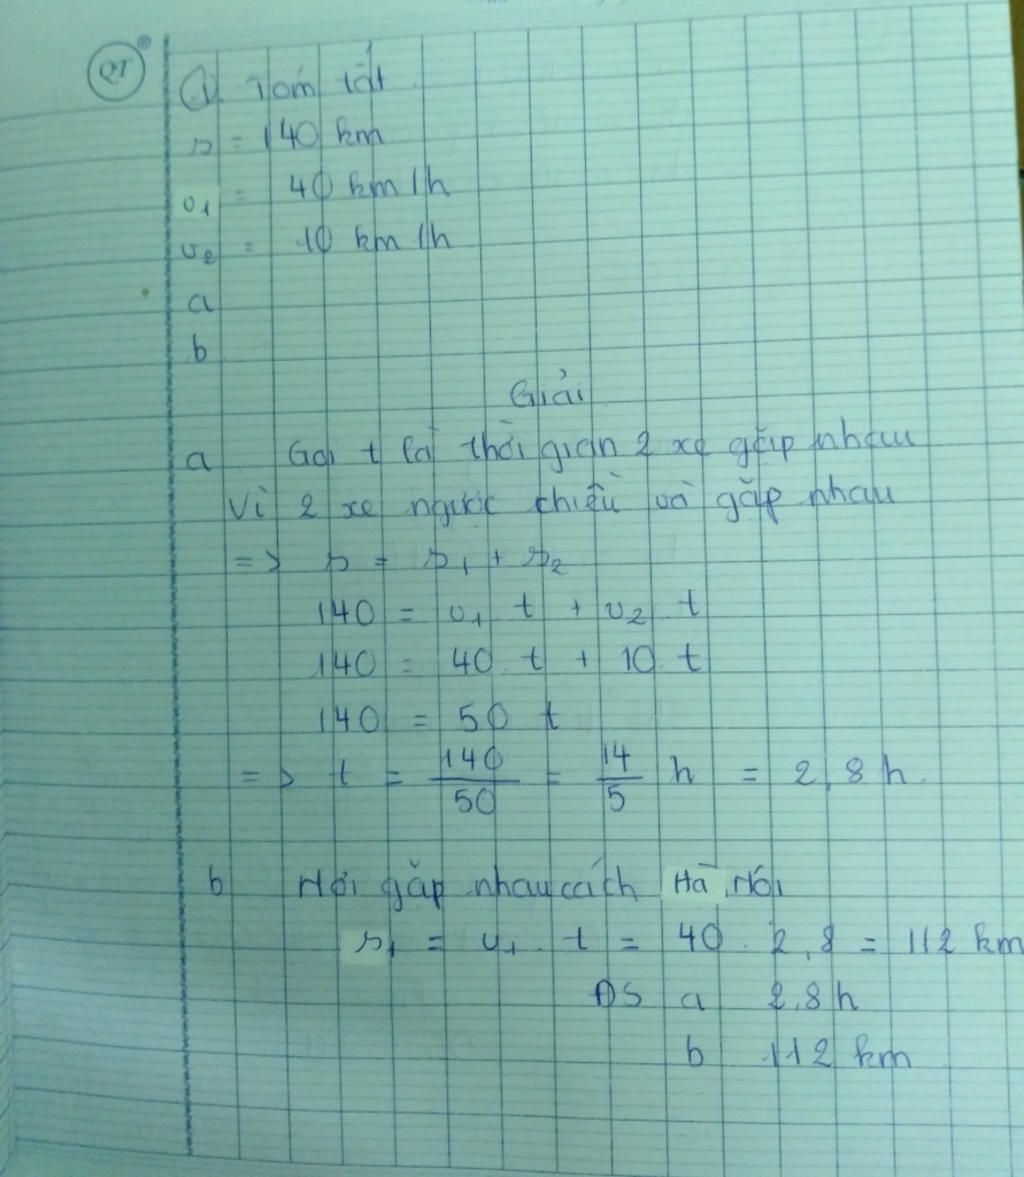 QT
① Tóm tắt
s = 140 km
v₁ = 40 km/h
v₂ = 10 km/h
a
b
Giải
a Gọi t là thời gian 2 xe gặp nhau
Vì 2 xe ngược chiều và gặp nhau
=> s = s₁ + s₂
140 = v₁ t + v₂ t
140 = 40. t + 10. t
140 = 50 t
=> t = 140/50 = 14/5 h = 2,8 h.
b Nơi gặp nhau cách Hà Nội
s₁ = v₁. t = 40. 2,8 = 112 km
ĐS a 2,8h
b 112 km